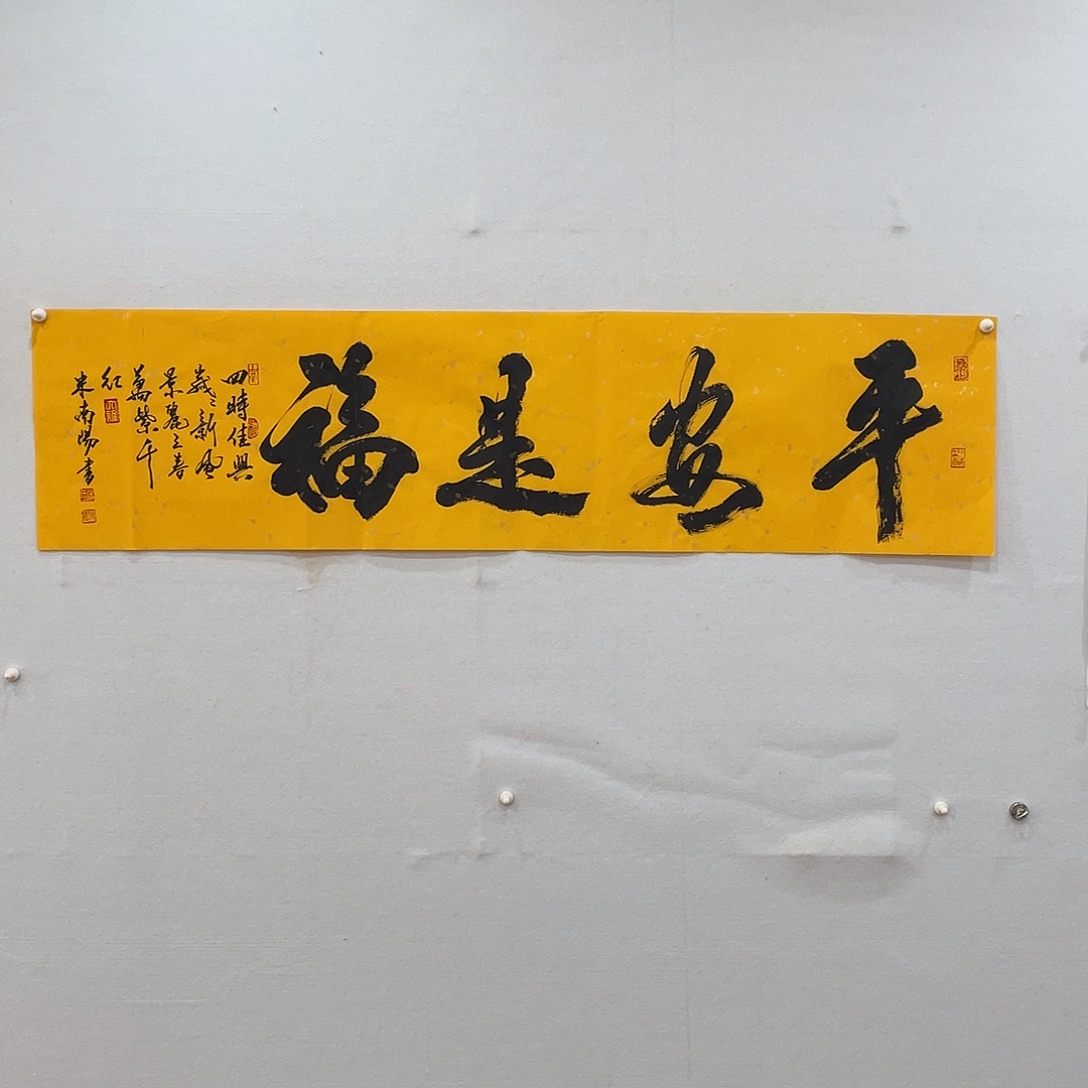 平安是福
四時佳興
歲〻新風
景麗三春
萬紫千
紅
朱南陽書